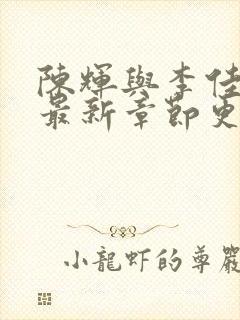 陳輝與李佳
最新章節更
小龍蝦的尊嚴